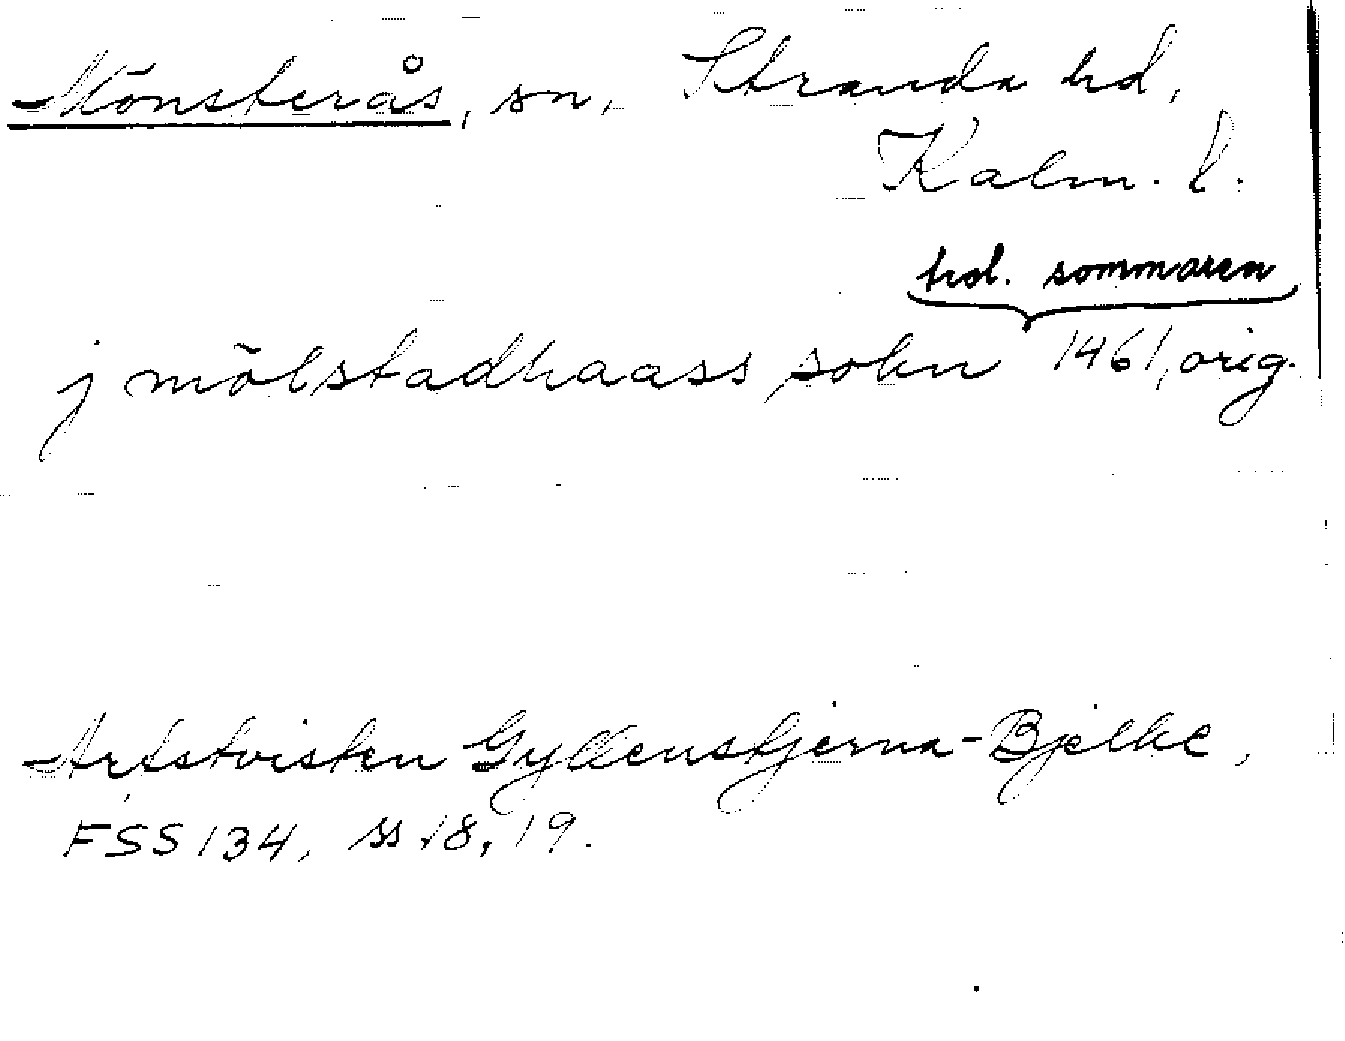 Mönsterås, sn, Stranda hd,
Kalm. l.
trol. sommaren
j mölstadhaass sokn 1461, orig.
Arvstvisten Gyllenstjerna-Bjelke,
FSS 134, ss 18, 19.